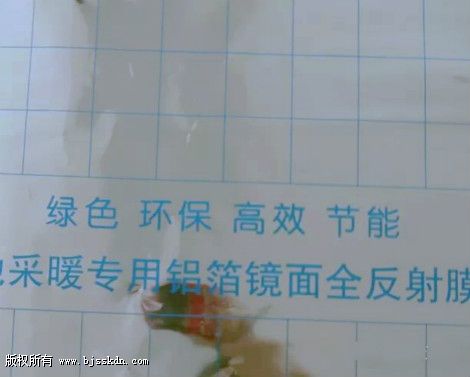 绿色 环保 高效 节能
采暖专用铝箔镜面全反射膜
版权所有 www.bjsskdn.com